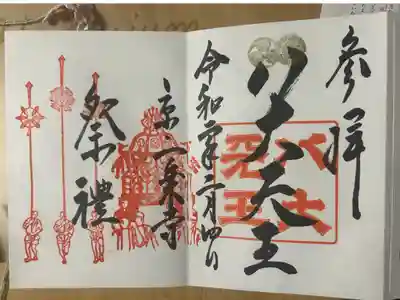 參拝
八大天王
八大
天王
令和二年二月四日
京一乗寺
祭禮